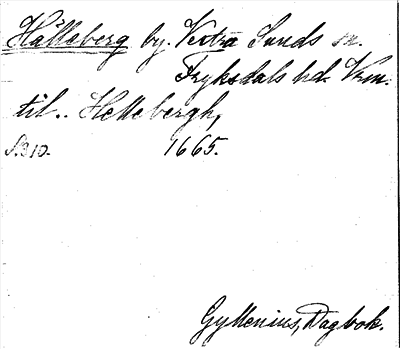 Hälleberg by. Vestra Sunds sn.
Fryksdals hd. Vrm.
til.. Hellebergh,
S. 310. 1665.
Gyllenius, Dagbok.